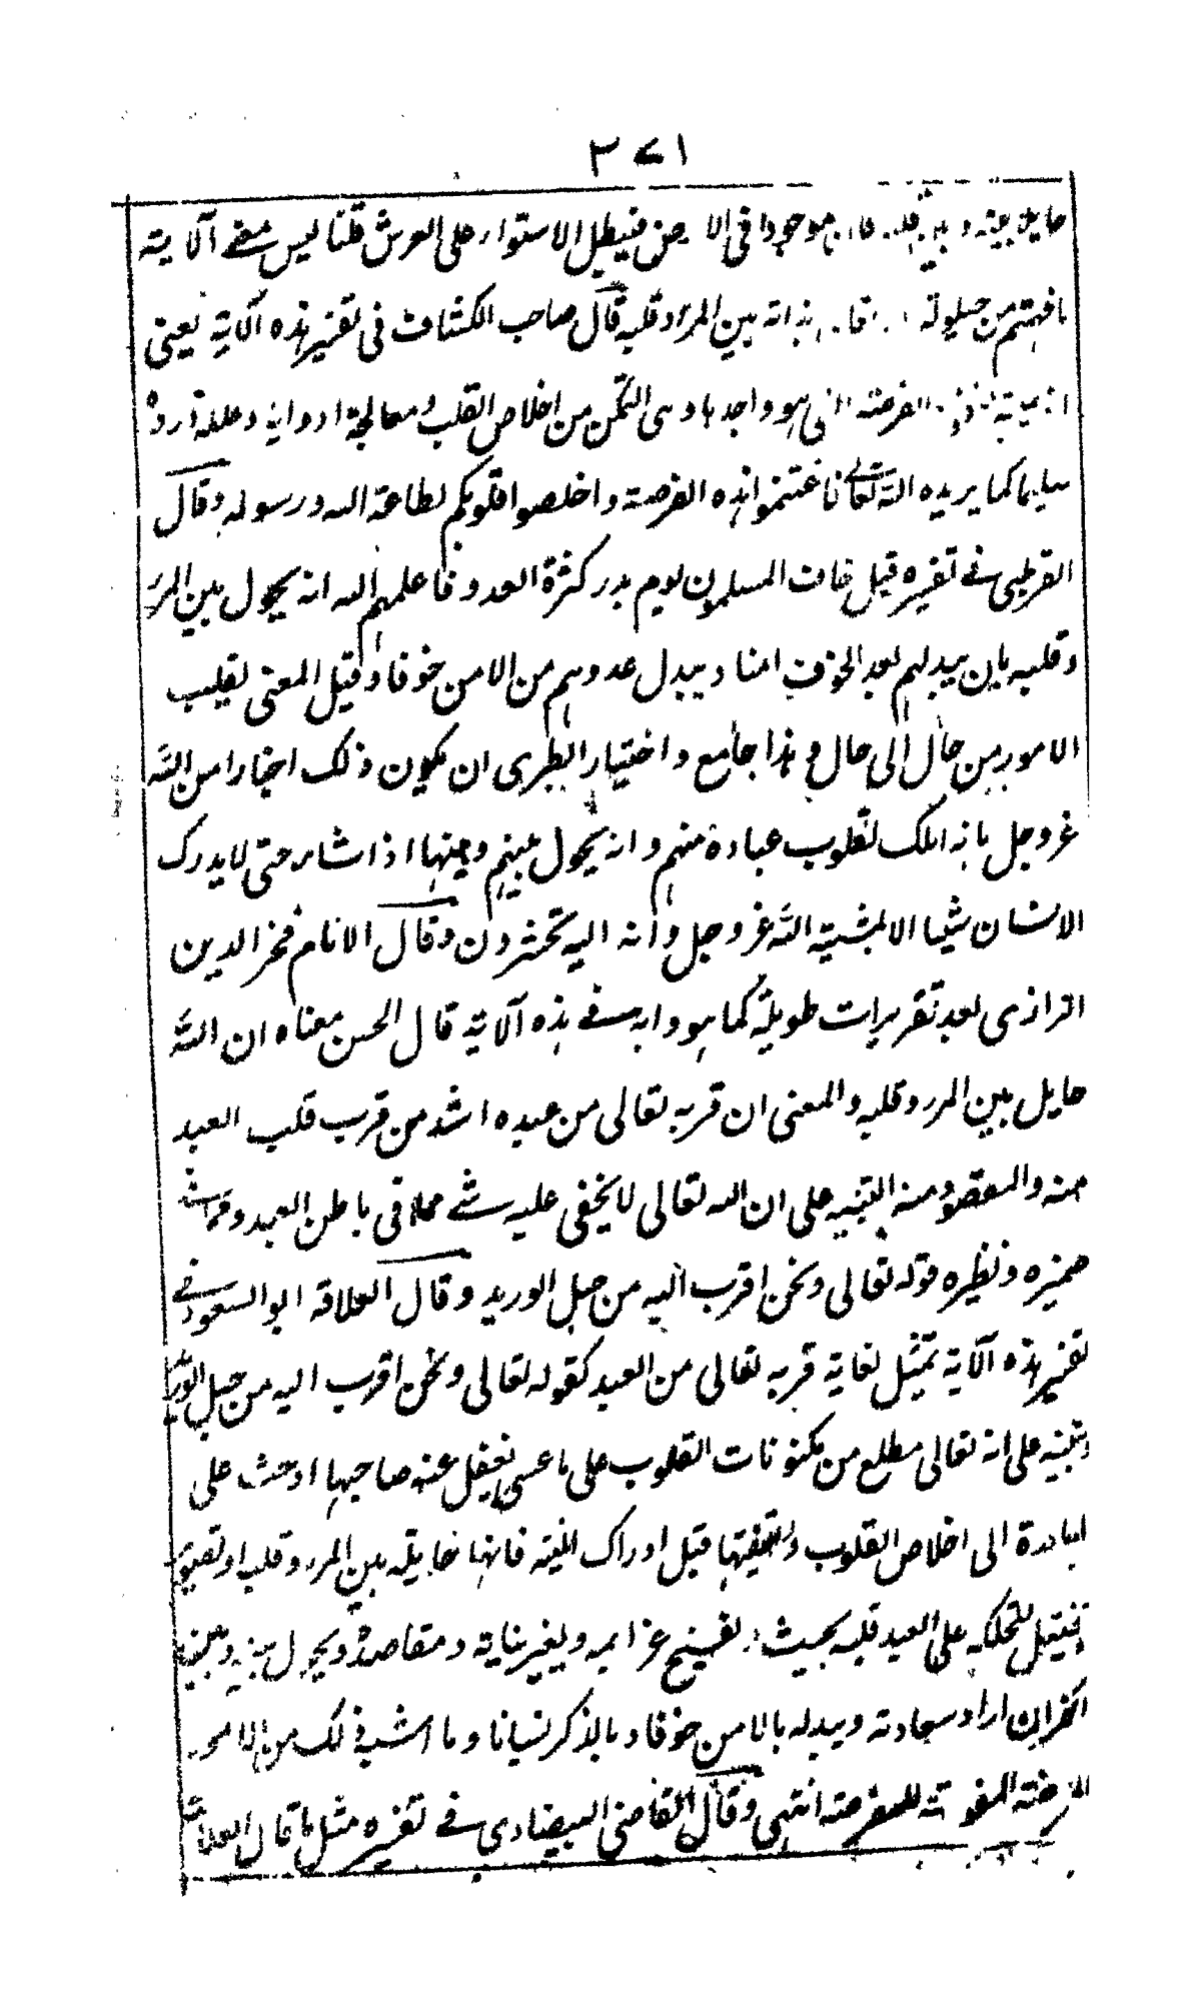 ٣٧١
موجودا فى الارض فيبطل الاستواء على العرش قلنا ليس معنے آلاية
ما فهمتم من حيلولة بذاته بين المرء وقلبه قال صاحب الكشاف فى تفسير هذه آلاية يعنى
الفرصة التى هو واجدها وهى التمكن من اخلاص القلب ومعالجة ادوائه وعلله ورده
سليما كما يريده الله تعالے فاغتنموا هذه الفرصة واخلصوا قلوبكم لطاعة الله ورسوله وقال
القرطبى فے تفسيره قيل خاف المسلمون يوم بدر كثرة العدو فاعلمهم الله انه يحول بين المرء
وقلبه بان يبدلهم بعد الخوف امنا ويبدل عدوهم من الامن خوفا وقيل المعنى يقلب
الامور من حال الى حال وهذا جامع واختيار الطبرى ان يكون ذلك اخبارا من الله
عز وجل بانه املك لقلوب عباده منهم وانه يحول بينهم وبينها اذا شاء حتى لا يدرك
الانسان شيئا الا بمشية الله عز وجل وانه اليه تحشرون وقال الامام فخر الدين
الرازى بعد تقريرات طويلة كما هو دابه فے هذه آلاية قال الحسن معناه ان الله
حايل بين المرء وقلبه والمعنى ان قربه تعالى من عبده اشد من قرب قلب العبد
منه والمقصود منه التنبيه على ان الله تعالى لا يخفى عليه شے مما فى باطن العبد ومما فے
ضميره ونظيره قوله تعالى ونحن اقرب اليه من حبل الوريد وقال العلامة ابو السعود فے
تفسير هذه آلاية تمثيل لغاية قربه تعالى من العبد كقوله تعالى ونحن اقرب اليه من حبل الوريد
وتنبيه على انه تعالى مطلع من مكنونات القلوب على ما عسى يغفل عنه صاحبها او حث على
المبادرة الى اخلاص القلوب وتصفيتها قبل ادراك المنية فانها حايلة بين المرء وقلبه او تصوير
وتخييل لتملكه على العبد قلبه بحيث يفسخ عزايمه ويغير نياته ومقاصده ويحول بينه وبين
الكفر ان اراد سعادته ويبدله بالامن خوفا وبالذكر نسيانا وما اشبه ذلك من الامور
المفوتة للفرصة انتهى وقال القاضى البيضاوى فے تفسيره مثل ما قال العلامة